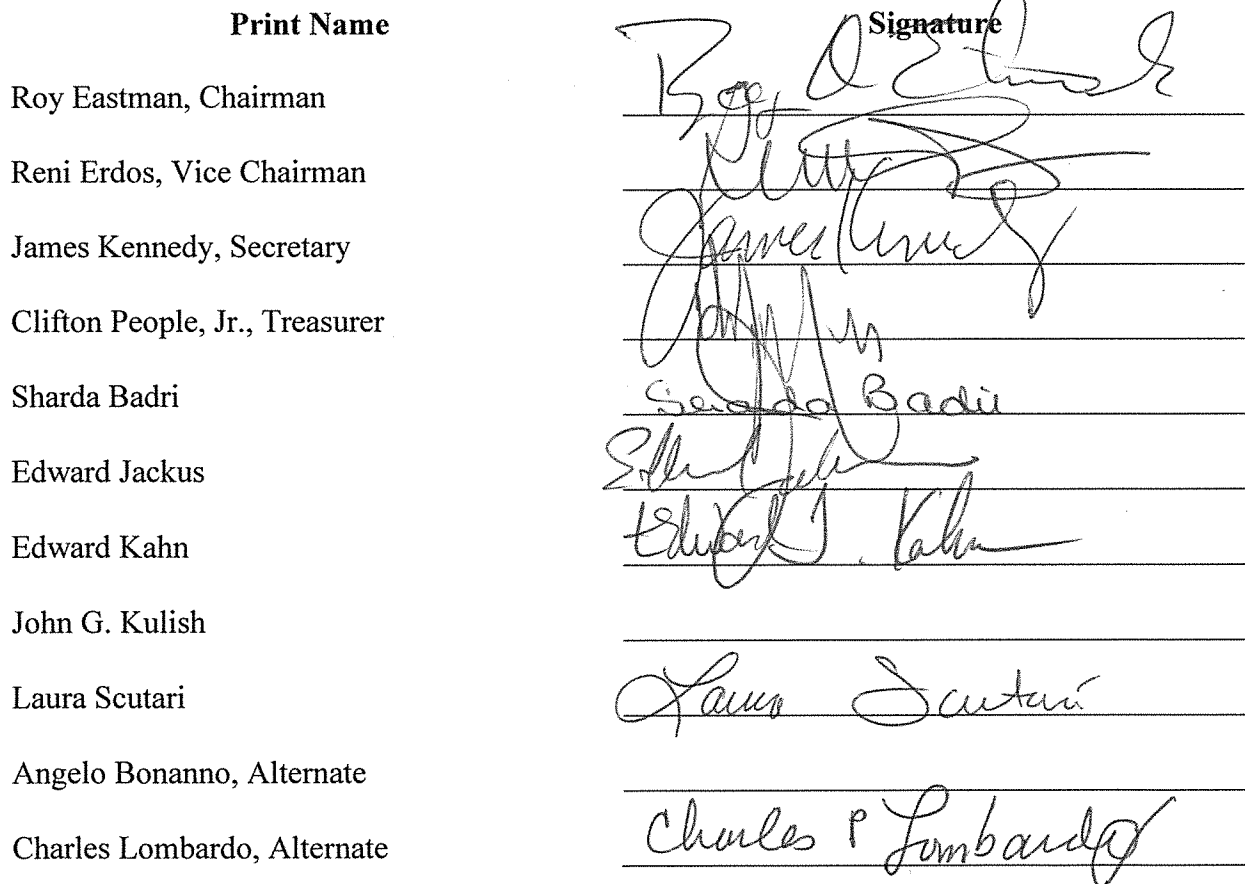 Print Name Signature
Roy Eastman, Chairman Roy A Eastman
Reni Erdos, Vice Chairman
James Kennedy, Secretary James Kennedy
Clifton People, Jr., Treasurer
Sharda Badri Sharda Badri
Edward Jackus
Edward Kahn Edward J. Kahn
John G. Kulish
Laura Scutari Laura Scutari
Angelo Bonanno, Alternate
Charles Lombardo, Alternate Charles P Lombardo